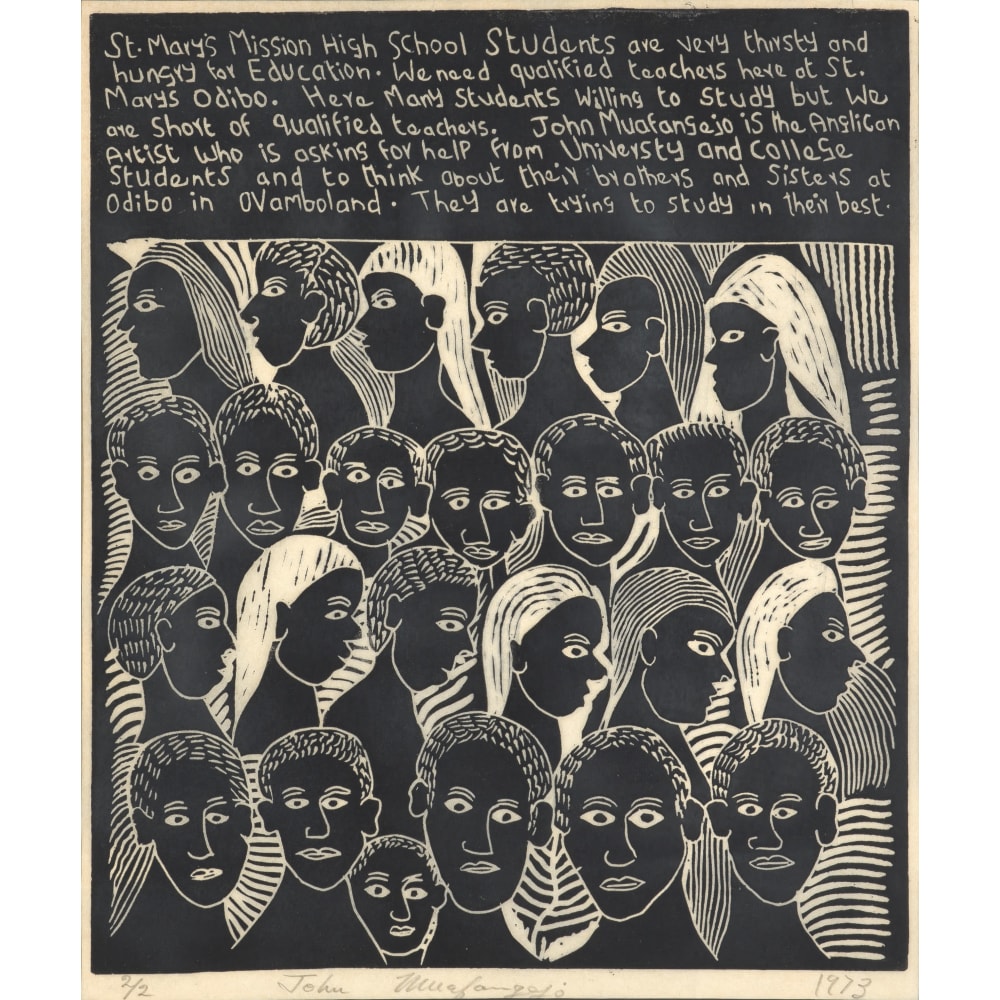 St. Mary's Mission High School Students are very thirsty and
hungry for Education. We need qualified teachers here at St.
Marys Odibo. Here Many Students Willing to Study but We
are Short of qualified teachers. John Muafangejo is the Anglican
Artist Who is asking for help From Universty and College
Students and to think about their brothers and Sisters at
Odibo in OVamboland. They are trying to study in their best.
2/2 John Muafangejo 1973